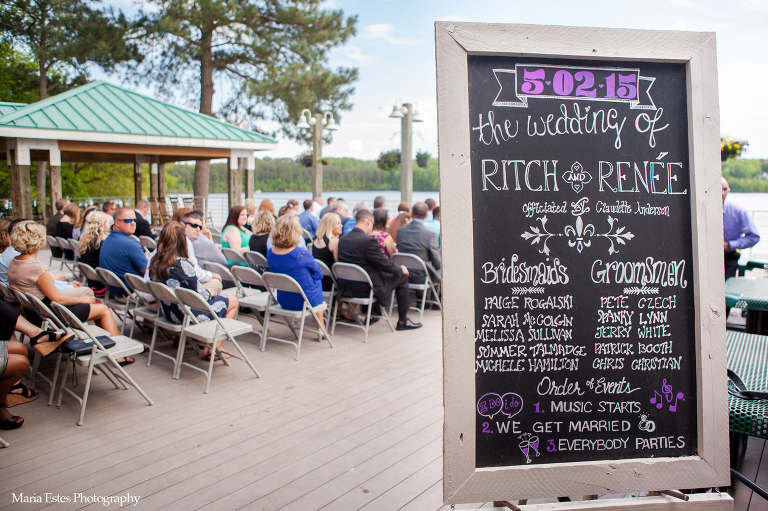 5•02•15
the wedding of
RITCH AND RENÉE
officiated by Claudette Anderson
Bridesmaids
PAIGE ROGALSKI
SARAH McGOLGIN
MELISSA SULLIVAN
SUMMER TALMADGE
MICHELE HAMILTON
Groomsmen
PETE CZECH
SPANKY LYNN
JERRY WHITE
PATRICK BOOTH
CHRIS CHRISTIAN
Order of Events
i do
1. MUSIC STARTS
2. WE GET MARRIED
3. EVERYBODY PARTIES
Maria Estes Photography